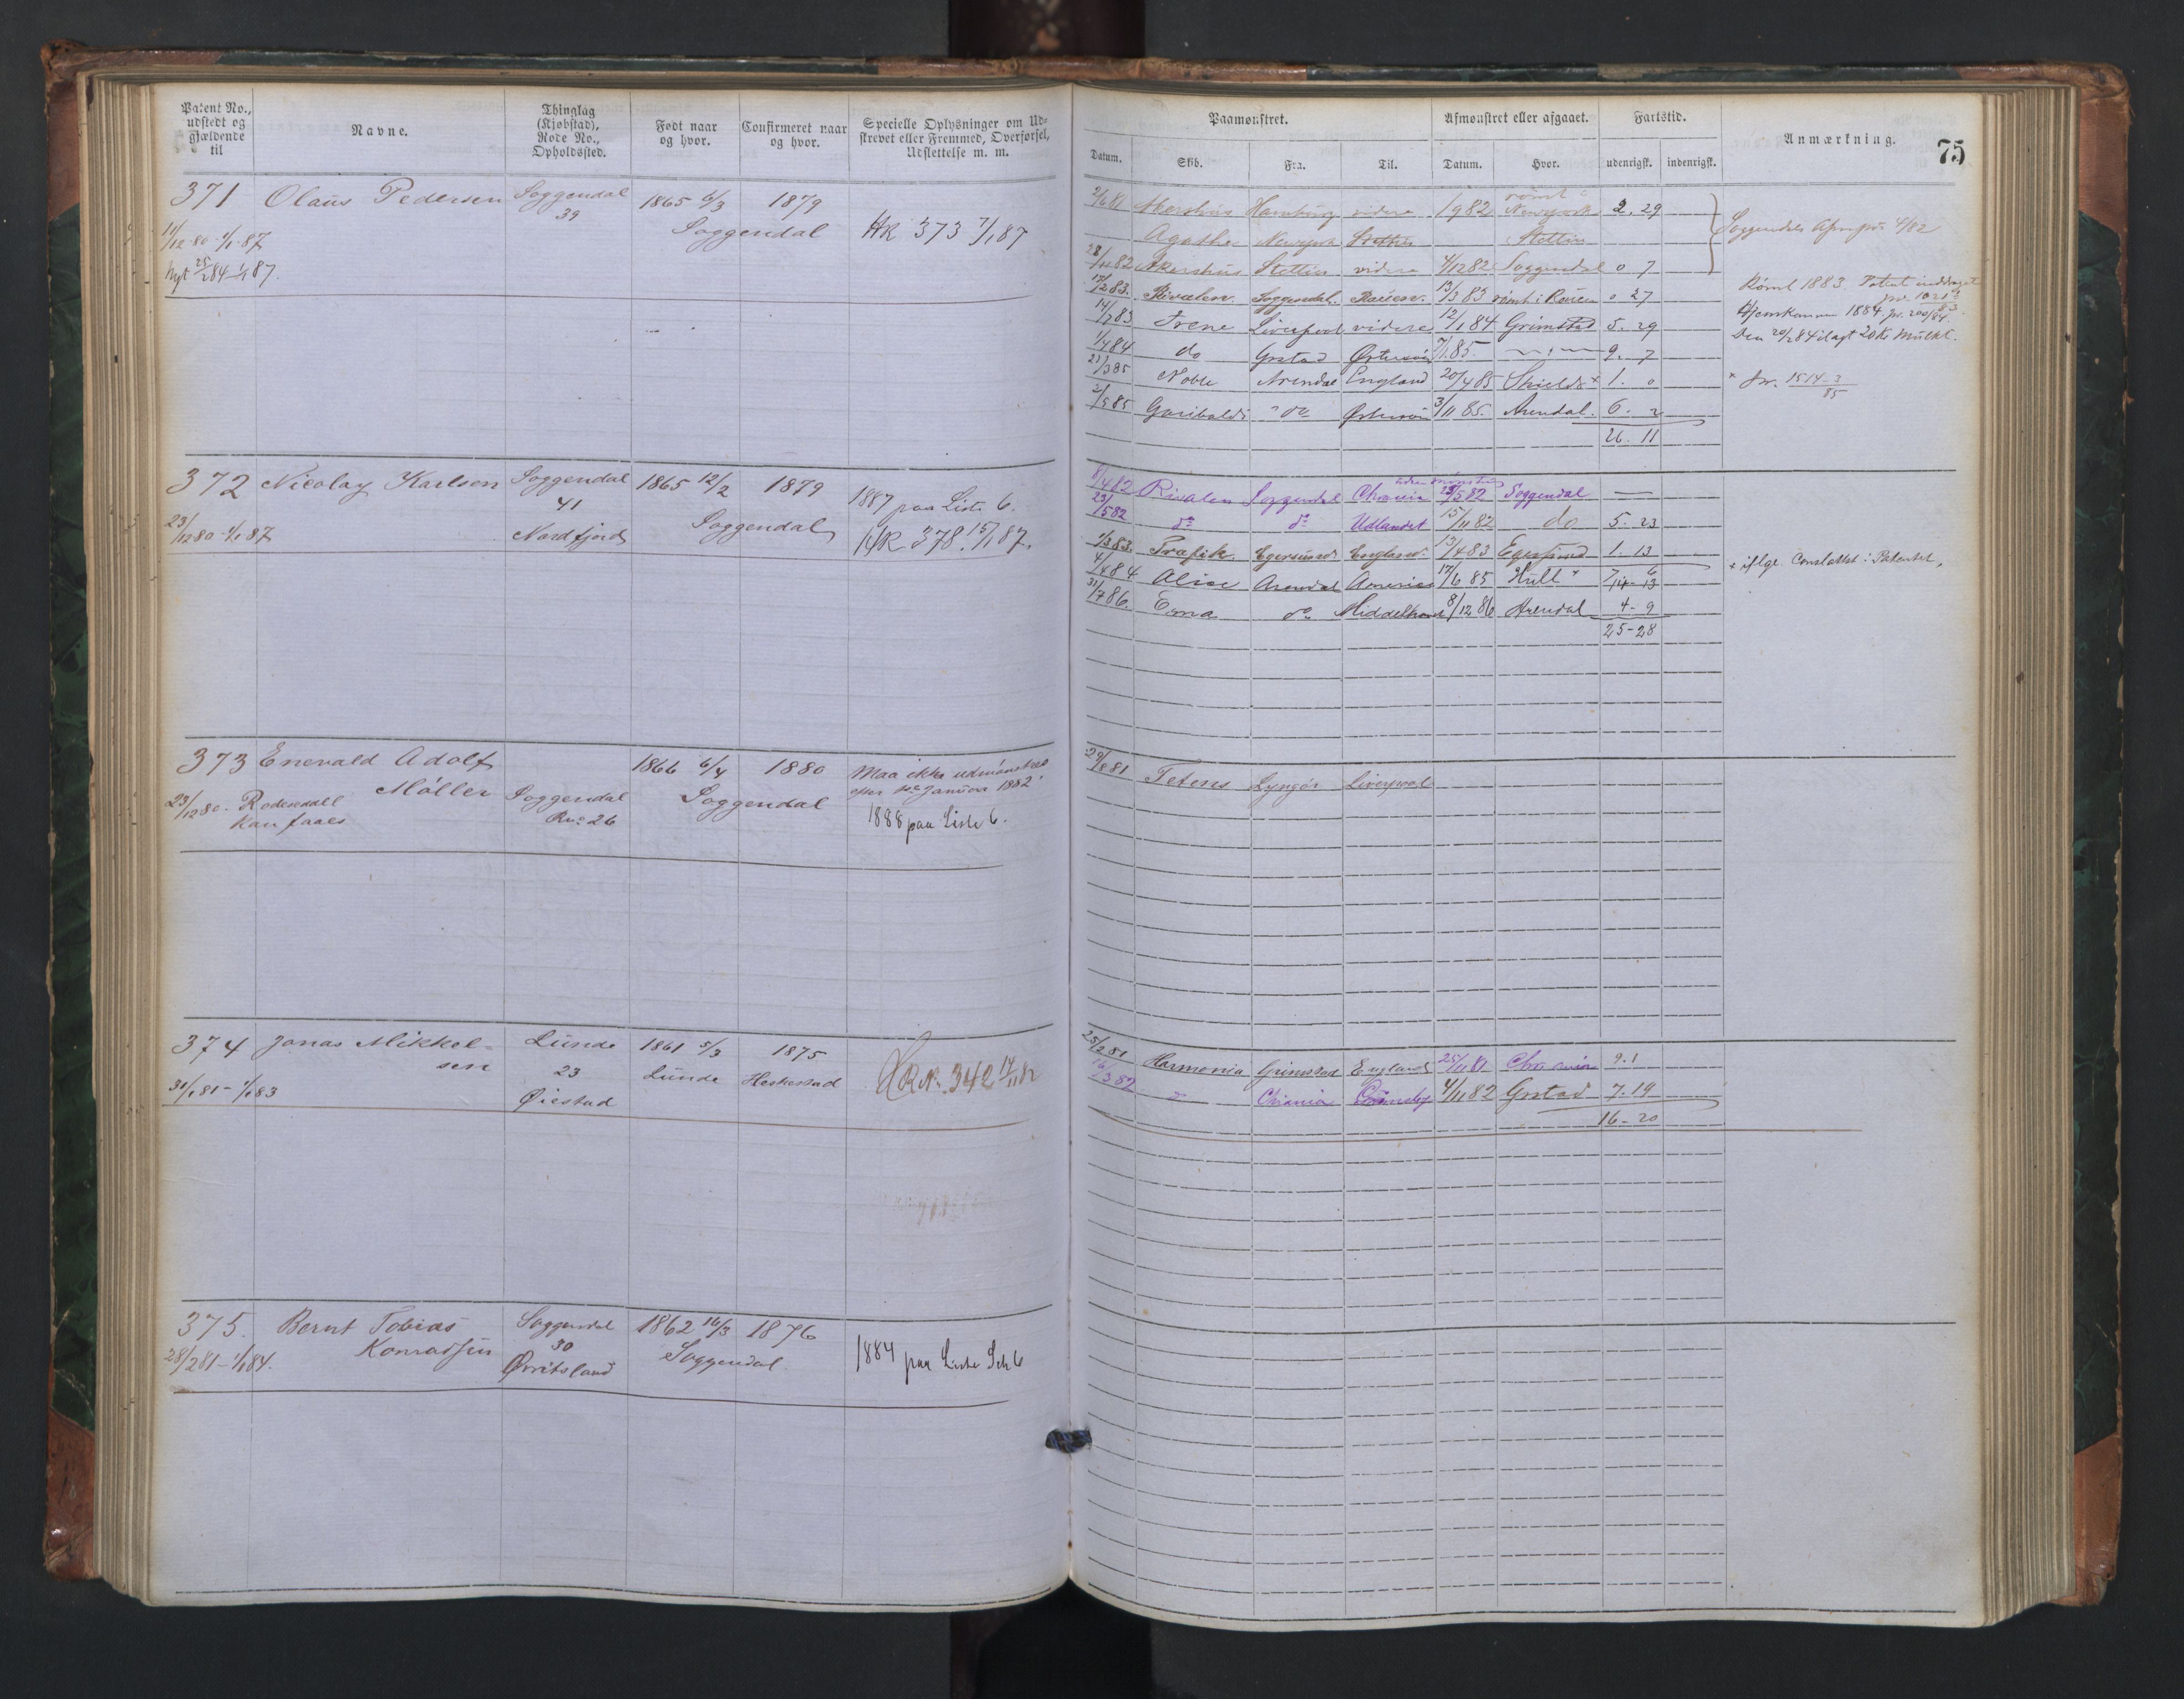 Patent No., udstedt og gjældende til
Navne.
Thinglag (Kjøbstad), Rode No., Opholdssted.
Født naar og hvor.
Confirmeret naar og hvor.
Specielle Oplysninger om Udstrevet eller Fremmed, Overførsel, Udslettelse m. m.
371 Olaus Pedersen Soggendal 1865 6/3 1879
39 Soggendal HR 373 7/1 87
11/12 80 - 1/1 87
Nyt 25/2 84 1/1 87.
372 Nicolay Karlsen Soggendal 1865 12/2 1879 1887 paa Liste 6.
41
23/12 80 - 1/1 87 Nordfjord Soggendal HR 378. 15/1 87.
373 Enevald Adolf 1866 6/4 1880 Maa ikke udmønstres
Møller Soggendal Soggendal efter Januar 1882
23/12 80. Rodeseddel Rno 26
kan faaes 1888 paa Liste 6.
374 Jonas Mikkel- Lunde 1861 5/3 1875
sen 23 Lunde Heskestad HR No 342 14/11 82
31/1 81 - 1/1 83 Øiestad
375. Bernt Tobias Soggendal 1862 16/3 1876
Konradsen 30 Soggendal 1884 paa Liste
28/2 81 - 1/1 84.
75
Paamønstret. Afmønstret eller afgaaet. Fartstid. Anmærkning.
Datum. Skib. Fra. Til. Datum. Hvor. udenrigsk. indenrigsk.
rømt
2/6 81 Hamburg videre 1/9 82 Newyork 2. 29
Agathe Newyork Stettin Stettin Soggendal 4/82
28/4 82 Akershus Stettin videre 4/12 82 Soggendal 0 7
12/2 83. Rivalen Soggendal. Rouen. 13/3 83 rømt i Rouen 0 27 Rømt 1883. Patent inddraget
14/7 83 Irene Liverpool videre 12/1 84 Grimstad 5. 29 Hjemkommen 1884 jr. 200/84.
1/4 84 do Grstad Østersøen 7/1 85. 9. 7 Den 20/2 84 ilagt 20 Kr Mulkt.
21/3 85 Noble Arendal England 20/4 85 Shields × 1. 0 × Jr. 1514-3/85
2/5 85 Garibaldi do Østersøen 3/11 85. Arendal. 6. 2
26. 11
8/4 82 Rivalen Soggendal Chrania 13/5 82 Soggendal —
23/5 82 do do Udlandet 15/11 82 do 5. 23
1/3 83. Trafik Egersund England 13/4 83 Egersund 1. 13
4/4 84 Alise Arendal America 17/6 85 Hull × 14-13 × iflge Conslattet i Patentet,
31/7 86. Erna do Middelhavet 8/12 86 Arendal 4-9
25-28
29/8 81 Tetens Lyngør Liverpool
25/2 81 Harmonia Grimstad England 25/11 81 Chrania 9. 1
16/3 82 Chrania Grimsby 4/11 82 Grstad 7. 19
16-20